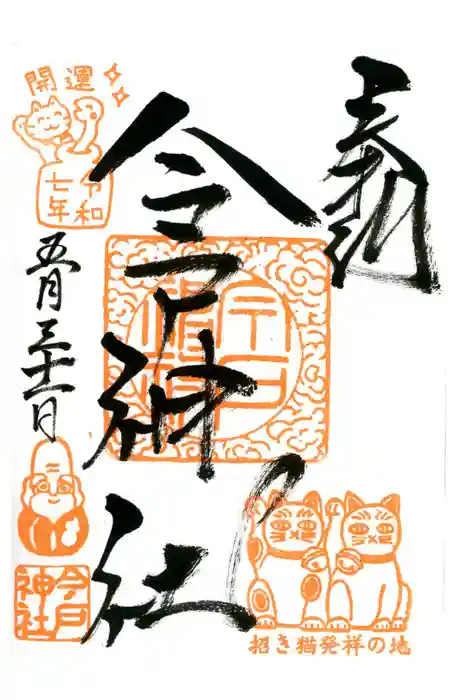 奉拝
今戸神社
開運
令和
七年
五月三十一日
今戸
神社
招き猫発祥の地